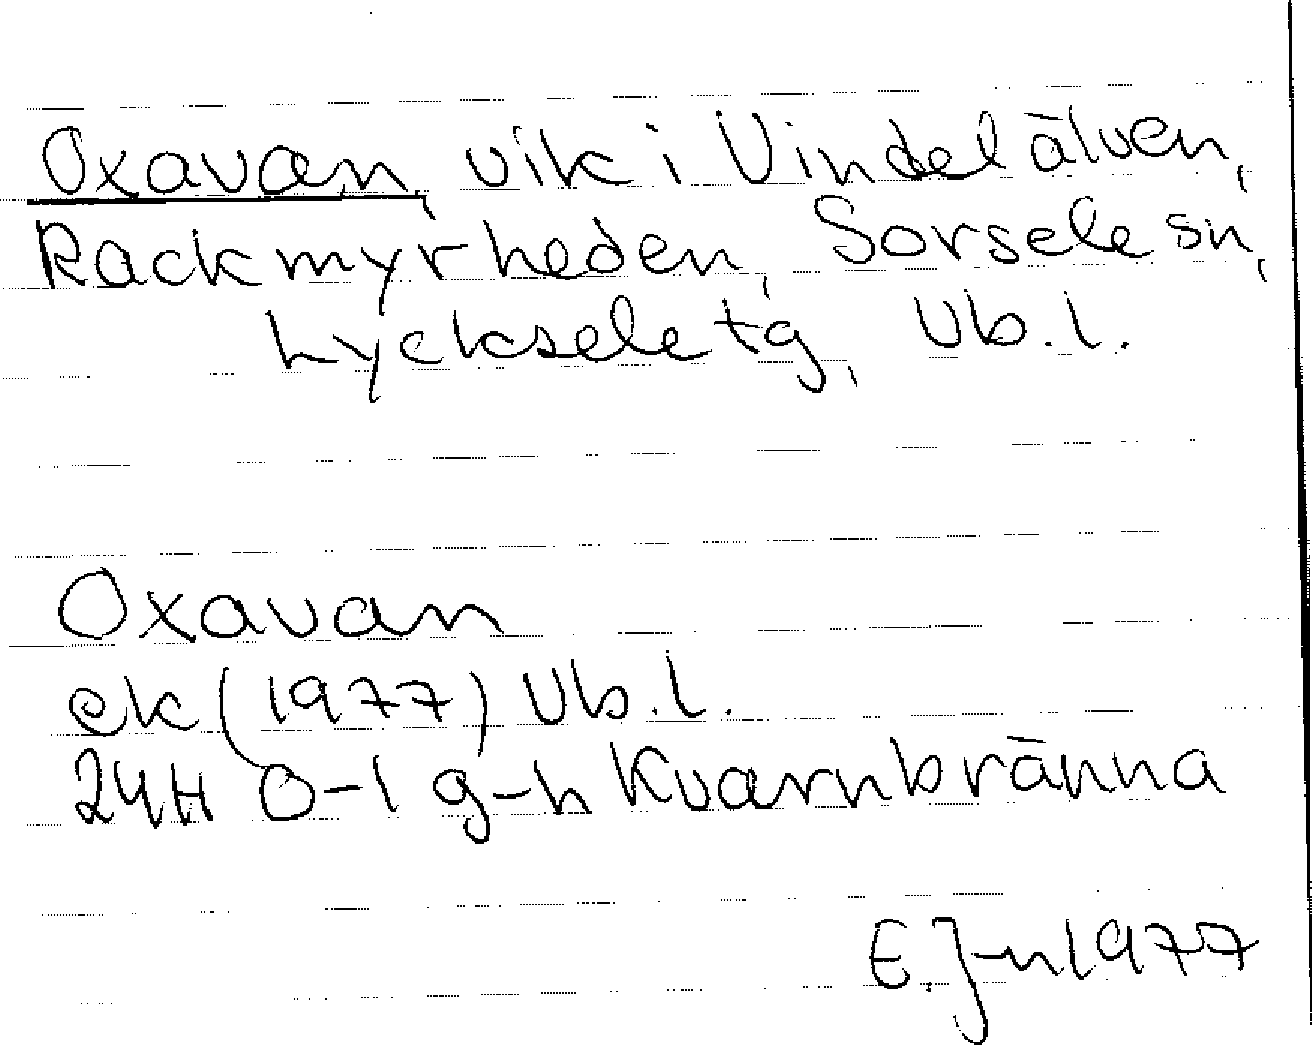 Oxavan, vik i Vindelälven,
Rackmyrheden, Sorsele sn,
Lycksele tg, Vb.l.
Oxavan
ek (1977) Vb.l.
24H 0-1 g-h Kvarnbränna
E.J-n 1977